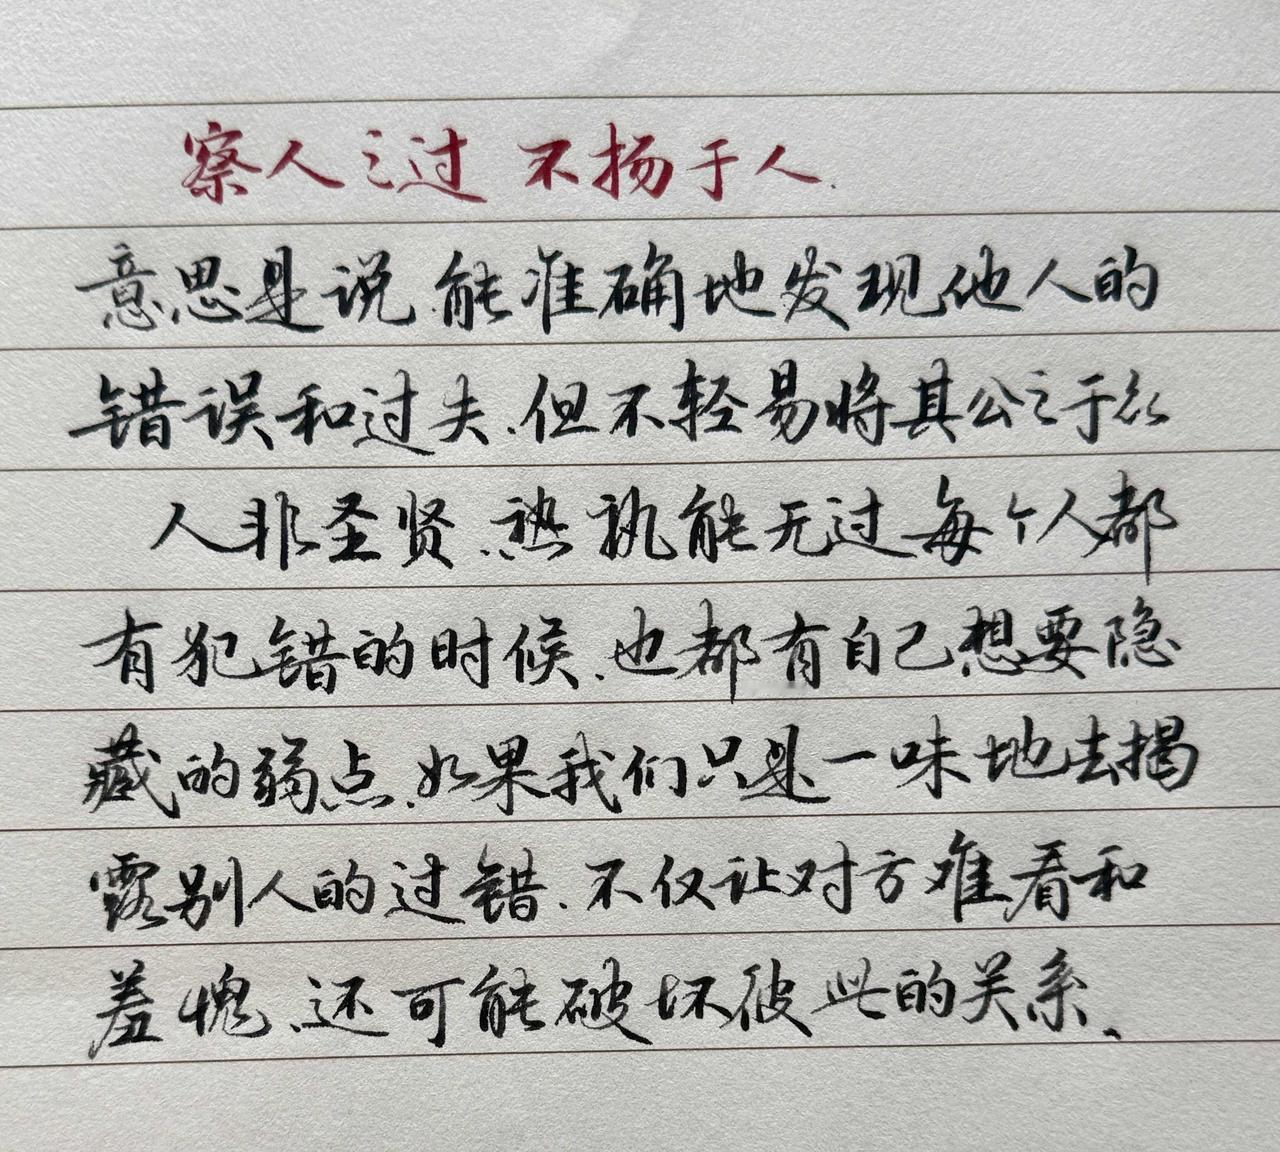 察人之过 不扬于人.
意思是说.能准确地发现他人的
错误和过失.但不轻易将其公之于众
人非圣贤.熟孰能无过每个人都
有犯错的时候.也都有自己想要隐
藏的弱点.如果我们只是一味地去揭
露别人的过错.不仅让对方难看和
羞愧.还可能破坏彼此的关系、